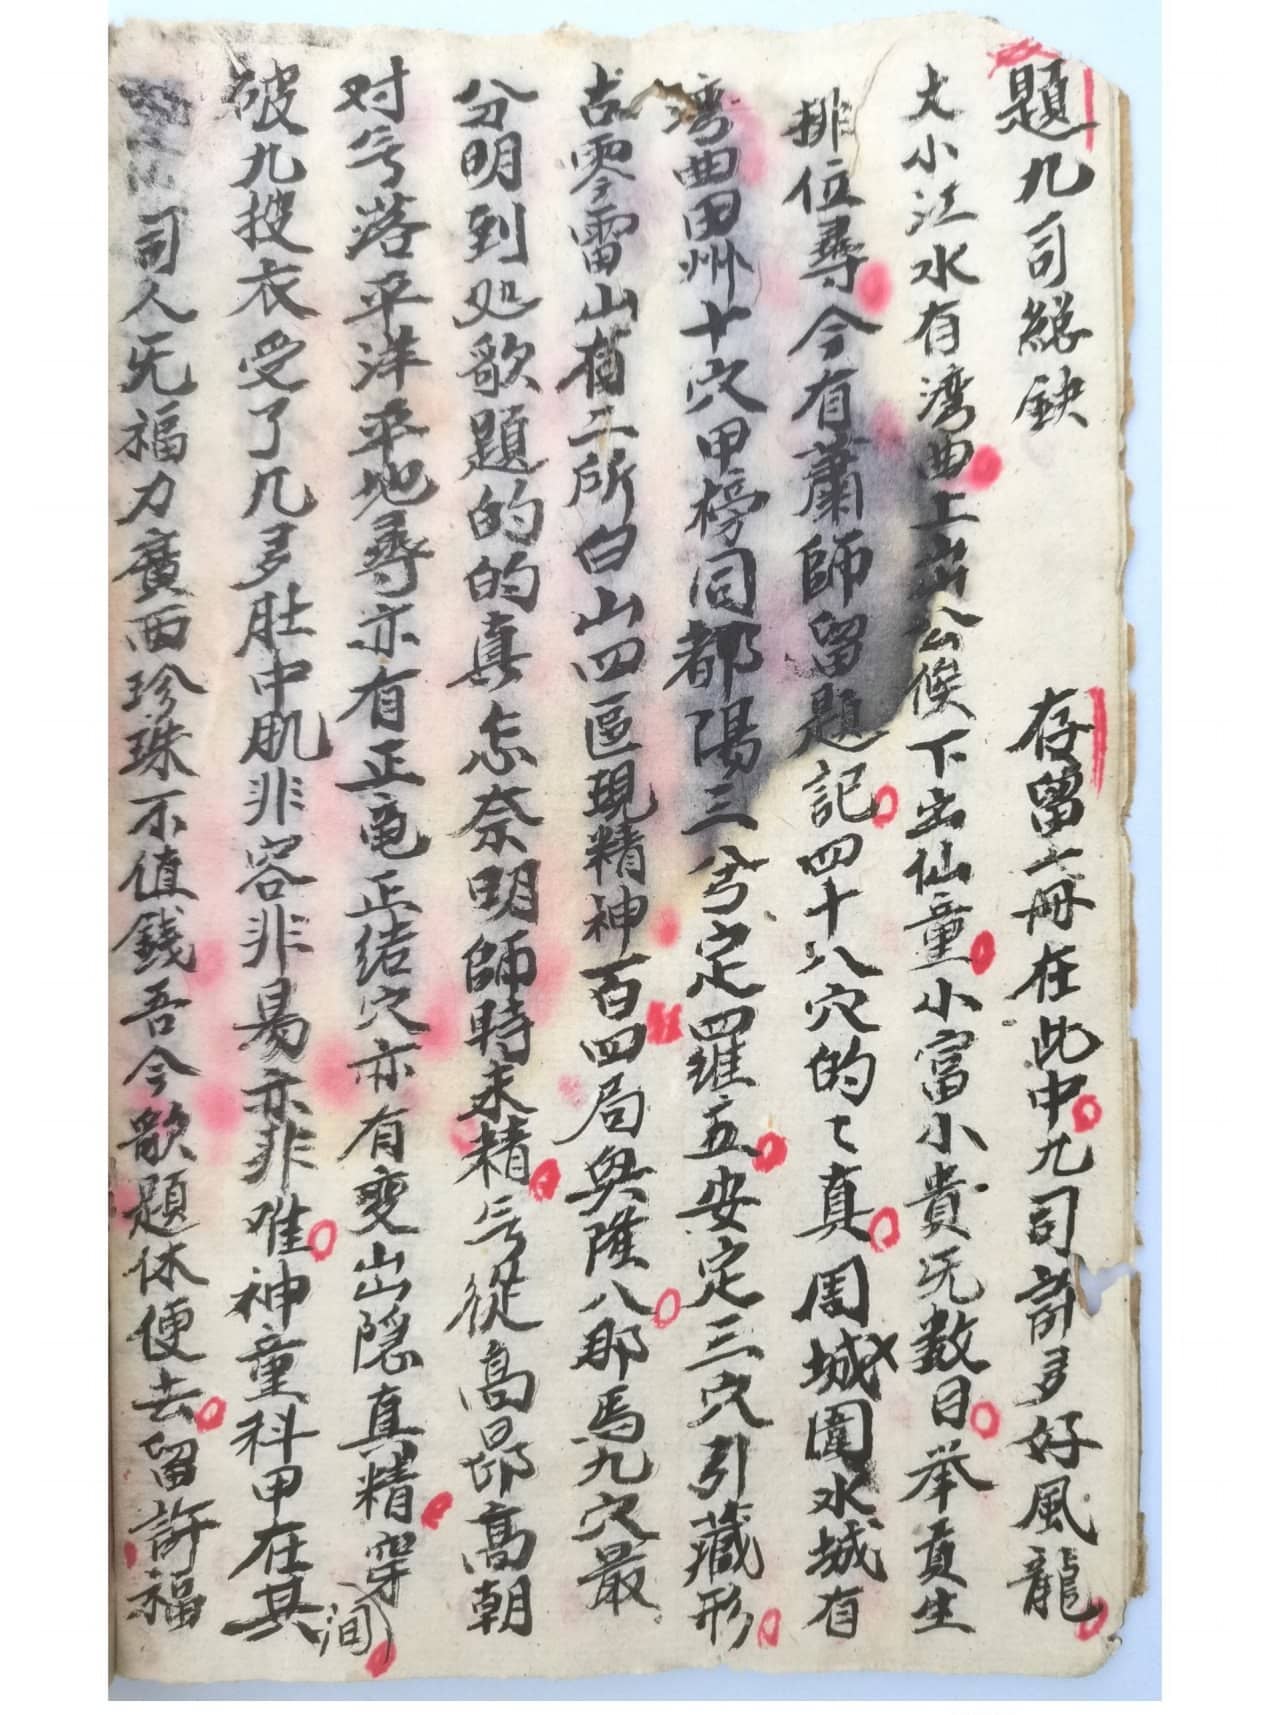 題九司總訣 存畱一冊在此中九司許多好風龍
大小江水有湾曲上出公候下出仙童小富小貴旡数目举貢生
排位尋今有蕭師留題記四十八穴的々真周城圍水城有
湾曲田州十穴甲榜同都陽三兮定羅五安定三穴引藏形
古零雷山有二所白山四區現精神百四局與隆八那馬九穴最
分明到処歌題的的真怎奈明師時未精兮從高昂高朝
对兮落平洋平地尋亦有正竜正结穴亦有变出隐真精穿
破九搜衣受了几多肚中肌非容非易亦非难神童科甲在其间
司人旡福力廣西珍珠不值錢吾今歌題休便去留許福